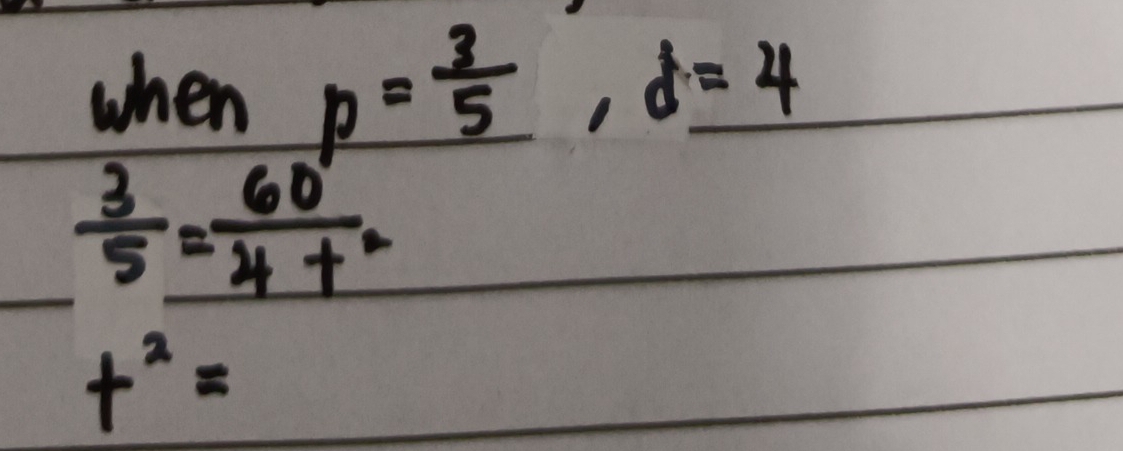 when p = 3/5 , d = 4
3/5 = 60/4t²
t² =